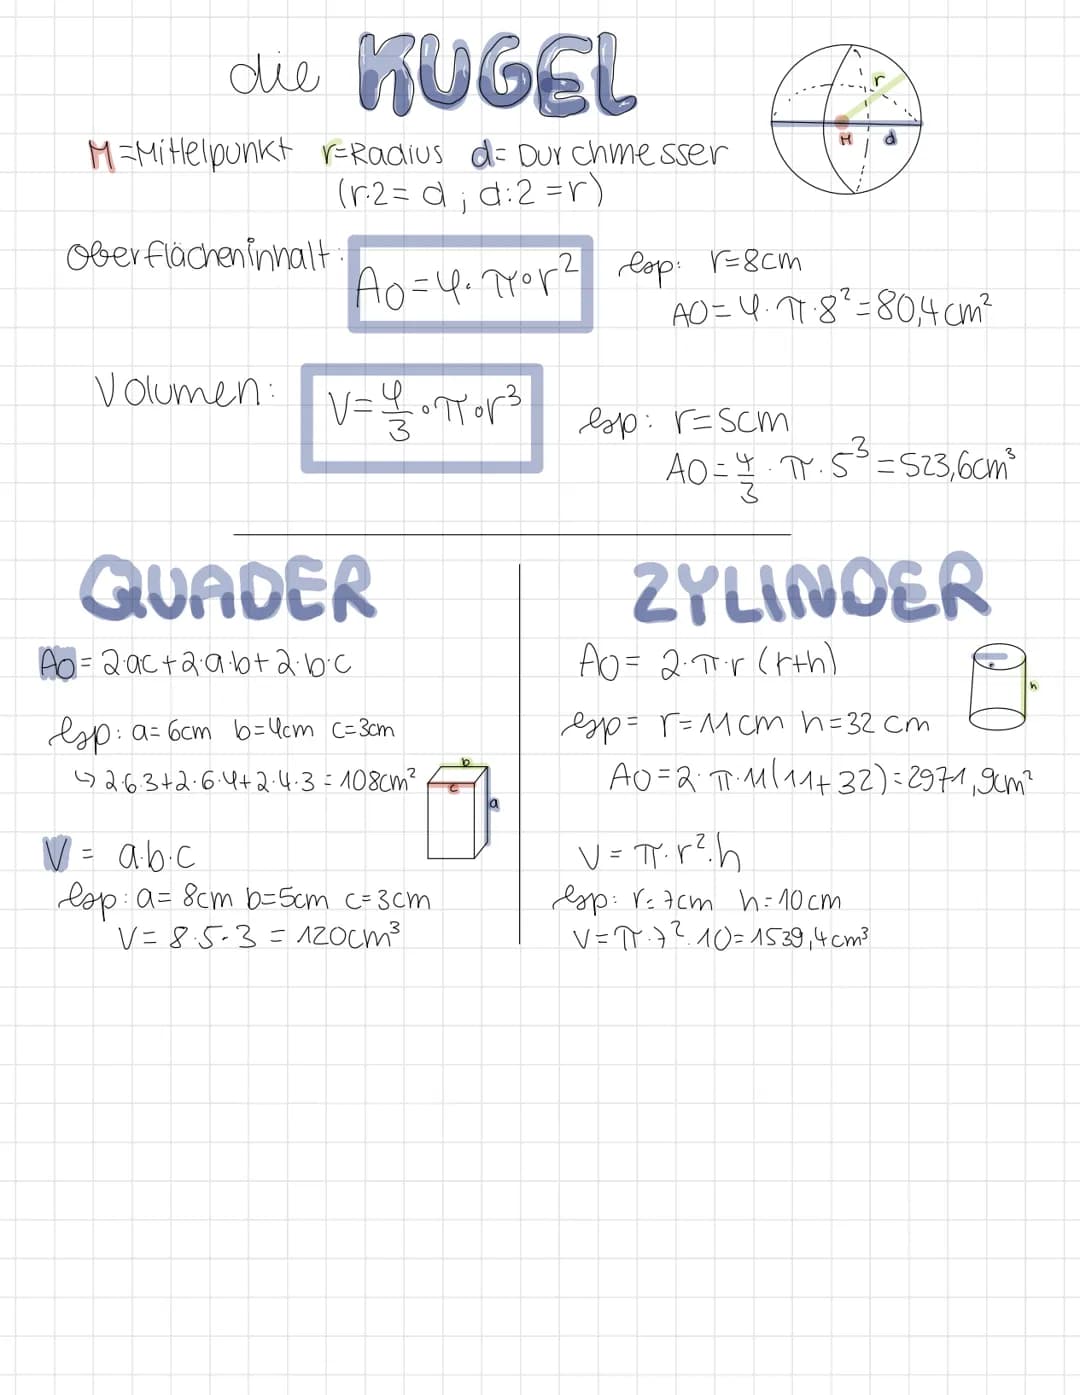 die KUGEL
r
M d
M=Mittelpunkt r=Radius d= Durchmesser
(r·2= d ; d:2 =r)
Oberflächeninhalt: AO=4·π·r² bsp: r=8cm
AO=4·π·8²=80,4cm²
Volumen: V=4/3·π·r³ bsp: r=5cm
AO=4/3·π·5³=523,6cm³
QUADER
AO= 2·ac+2·a·b+2·b·c
bsp: a=6cm b=4cm c=3cm
↳ 2·6·3+2·6·4+2·4·3=108cm²
b
c
a
V = a·b·c
bsp: a= 8cm b=5cm c=3cm
V= 8·5·3 = 120cm³
ZYLINDER
AO= 2·π·r (r+h)
h
bsp= r=11cm h=32 cm
AO=2·π·11(11+32)=2971,9cm²
V=π·r²·h
bsp: r=7cm h=10cm
V=π·7²·10=1539,4cm³